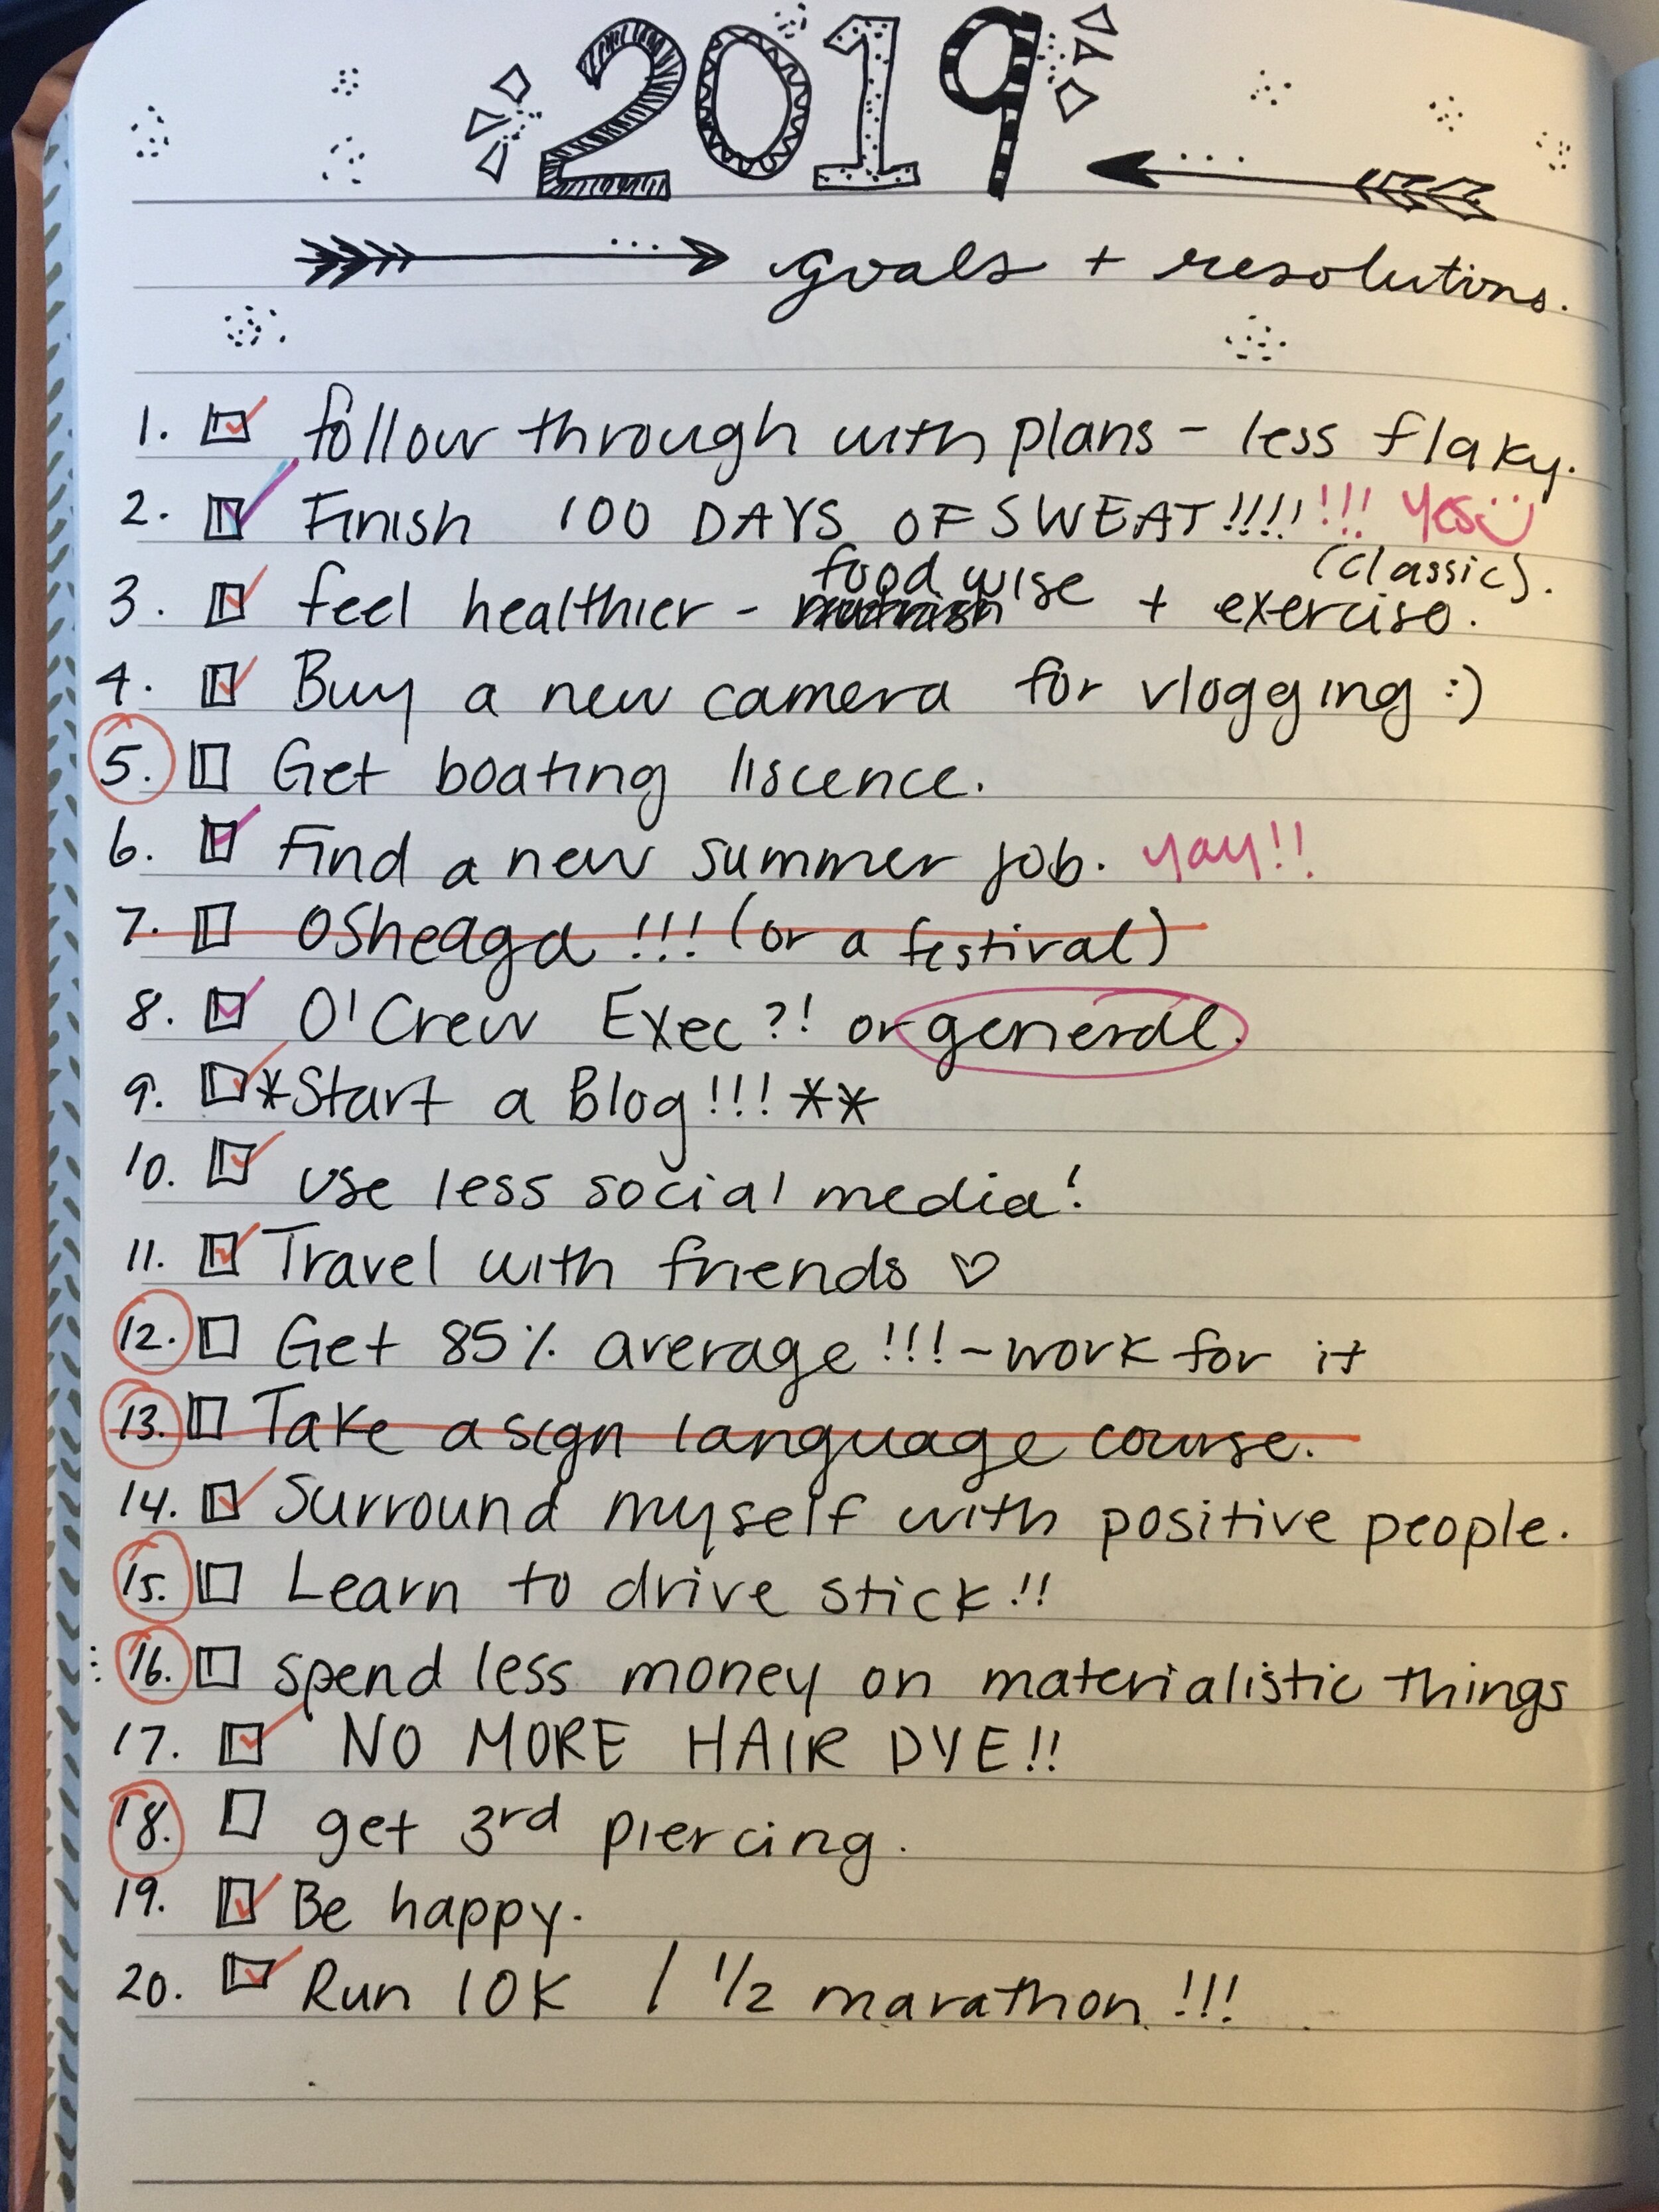 2019
goals + resolutions.
1. follow through with plans - less flaky.
2. Finish 100 DAYS OF SWEAT!!!! !!! Yes
3. feel healthier - food wise + exercise. (classic).
4. Buy a new camera for vlogging :)
5. Get boating liscence.
6. Find a new summer job. yay!!
7. OSheaga!!! (or a festival)
8. O'Crew Exec?! or general.
9. *Start a Blog!!! **
10. Use less social media!
11. Travel with friends ♡
12. Get 85% average!!! ~ work for it
13. Take a sign language course.
14. Surround myself with positive people.
15. Learn to drive stick!!
16. spend less money on materialistic things
17. NO MORE HAIR DYE!!
18. get 3rd piercing.
19. Be happy.
20. Run 10K / 1/2 marathon!!!